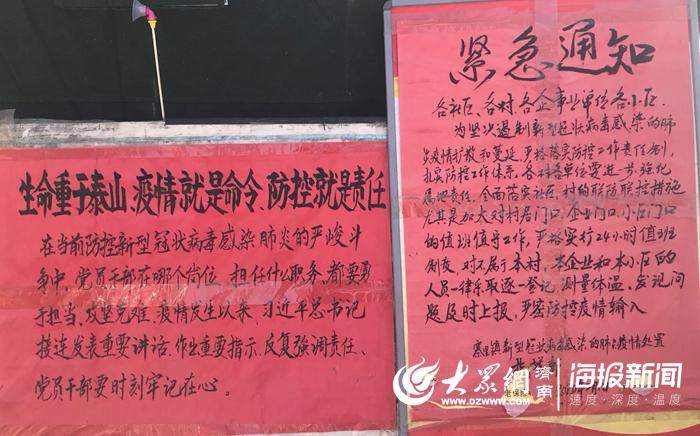 生命重于泰山,疫情就是命令、防控就是责任
在当前防控新型冠状病毒感染肺炎的严峻斗
争中,党员干部在哪个岗位、担任什么职务、都要勇
于担当、攻坚克难、疫情发生以来、习近平总书记
接连发表重要讲话、作出重要指示、反复强调责任、
党员干部要时刻牢记在心。
紧急通知
各社区、各村各企事业单位各小区、
为坚决遏制新型冠状病毒感染的肺
炎疫情扩散和蔓延,严格落实防控工作责任制,
扎实防控工作体系,各村各单位要进一步强化
属地责任,全面落实社区、村的联防联控措施
尤其是加大对村居门口、企业门口、小区门口
的值班值守工作,严格实行24小时值班
制度,对不属于本村、本企业和本小区的
人员一律采取逐一登记、测量体温、发现问
题及时上报,严密防控疫情输入
镇新型冠状病毒感染的肺炎疫情处置
大众网 济南
www.dzwww.com
海报新闻
速度·深度·温度